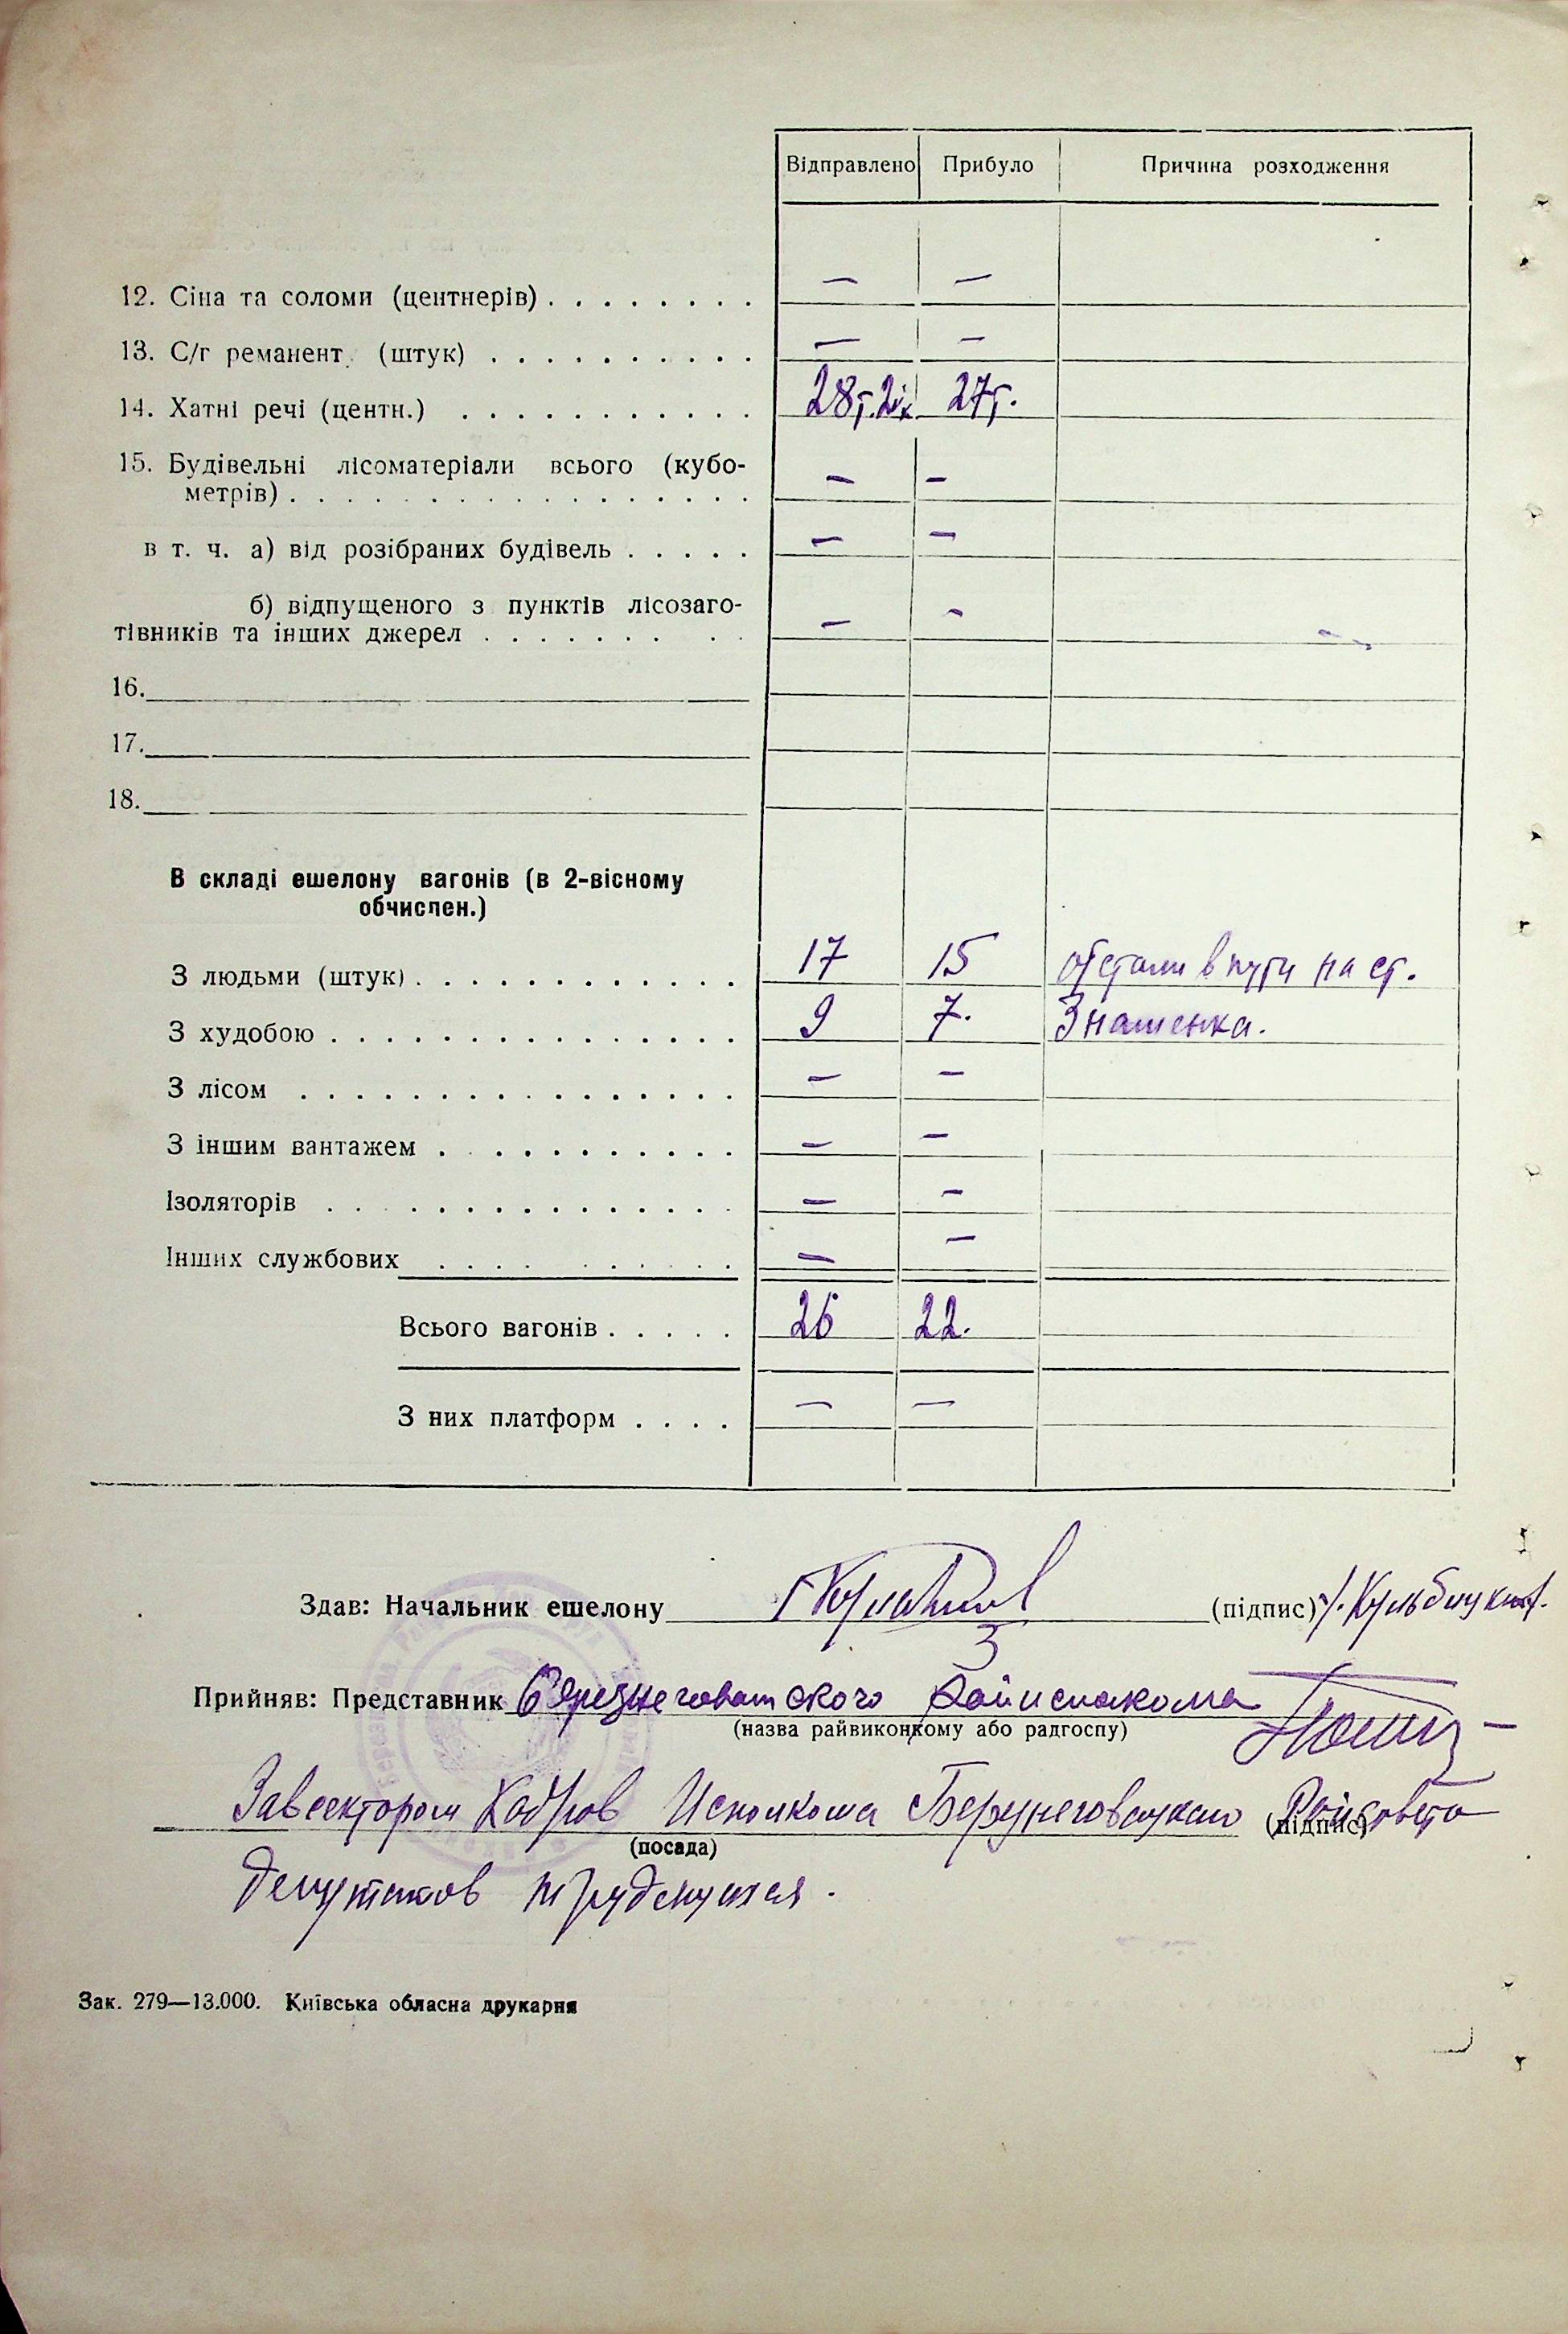 Відправлено Прибуло Причина розходження
12. Сіна та соломи (центнерів) . . . . . . . . — —
13. С/г реманент (штук) . . . . . . . . . . — —
14. Хатні речі (центн.) . . . . . . . . . . . 28т. 27т.
15. Будівельні лісоматеріали всього (кубо-
метрів) . . . . . . . . . . . . . . . . . — —
в т. ч. а) від розібраних будівель . . . . . — —
б) відпущеного з пунктів лісозаго-
тівників та інших джерел . . . . . . . . . — —
16.
17.
18.
В складі ешелону вагонів (в 2-вісному
обчислен.)
З людьми (штук) . . . . . . . . . . . . 17 15 отстали в пути на ст.
З худобою . . . . . . . . . . . . . . . 9 7. Знаменка.
З лісом . . . . . . . . . . . . . . . . — —
З іншим вантажем . . . . . . . . . . . — —
Ізоляторів . . . . . . . . . . . . . . . — —
Інших службових . . . . . . . . . . — —
Всього вагонів . . . . . 26 22.
З них платформ . . . . — —
Здав: Начальник ешелону (підпис)
Прийняв: Представник Березнеговатского Райисполкома
(назва райвиконкому або радгоспу)
Завсектором Кадров Исполкома Березнеговатского Райсовета
(посада) (підпис)
депутатов трудящихся.
Зак. 279—13.000. Київська обласна друкарня